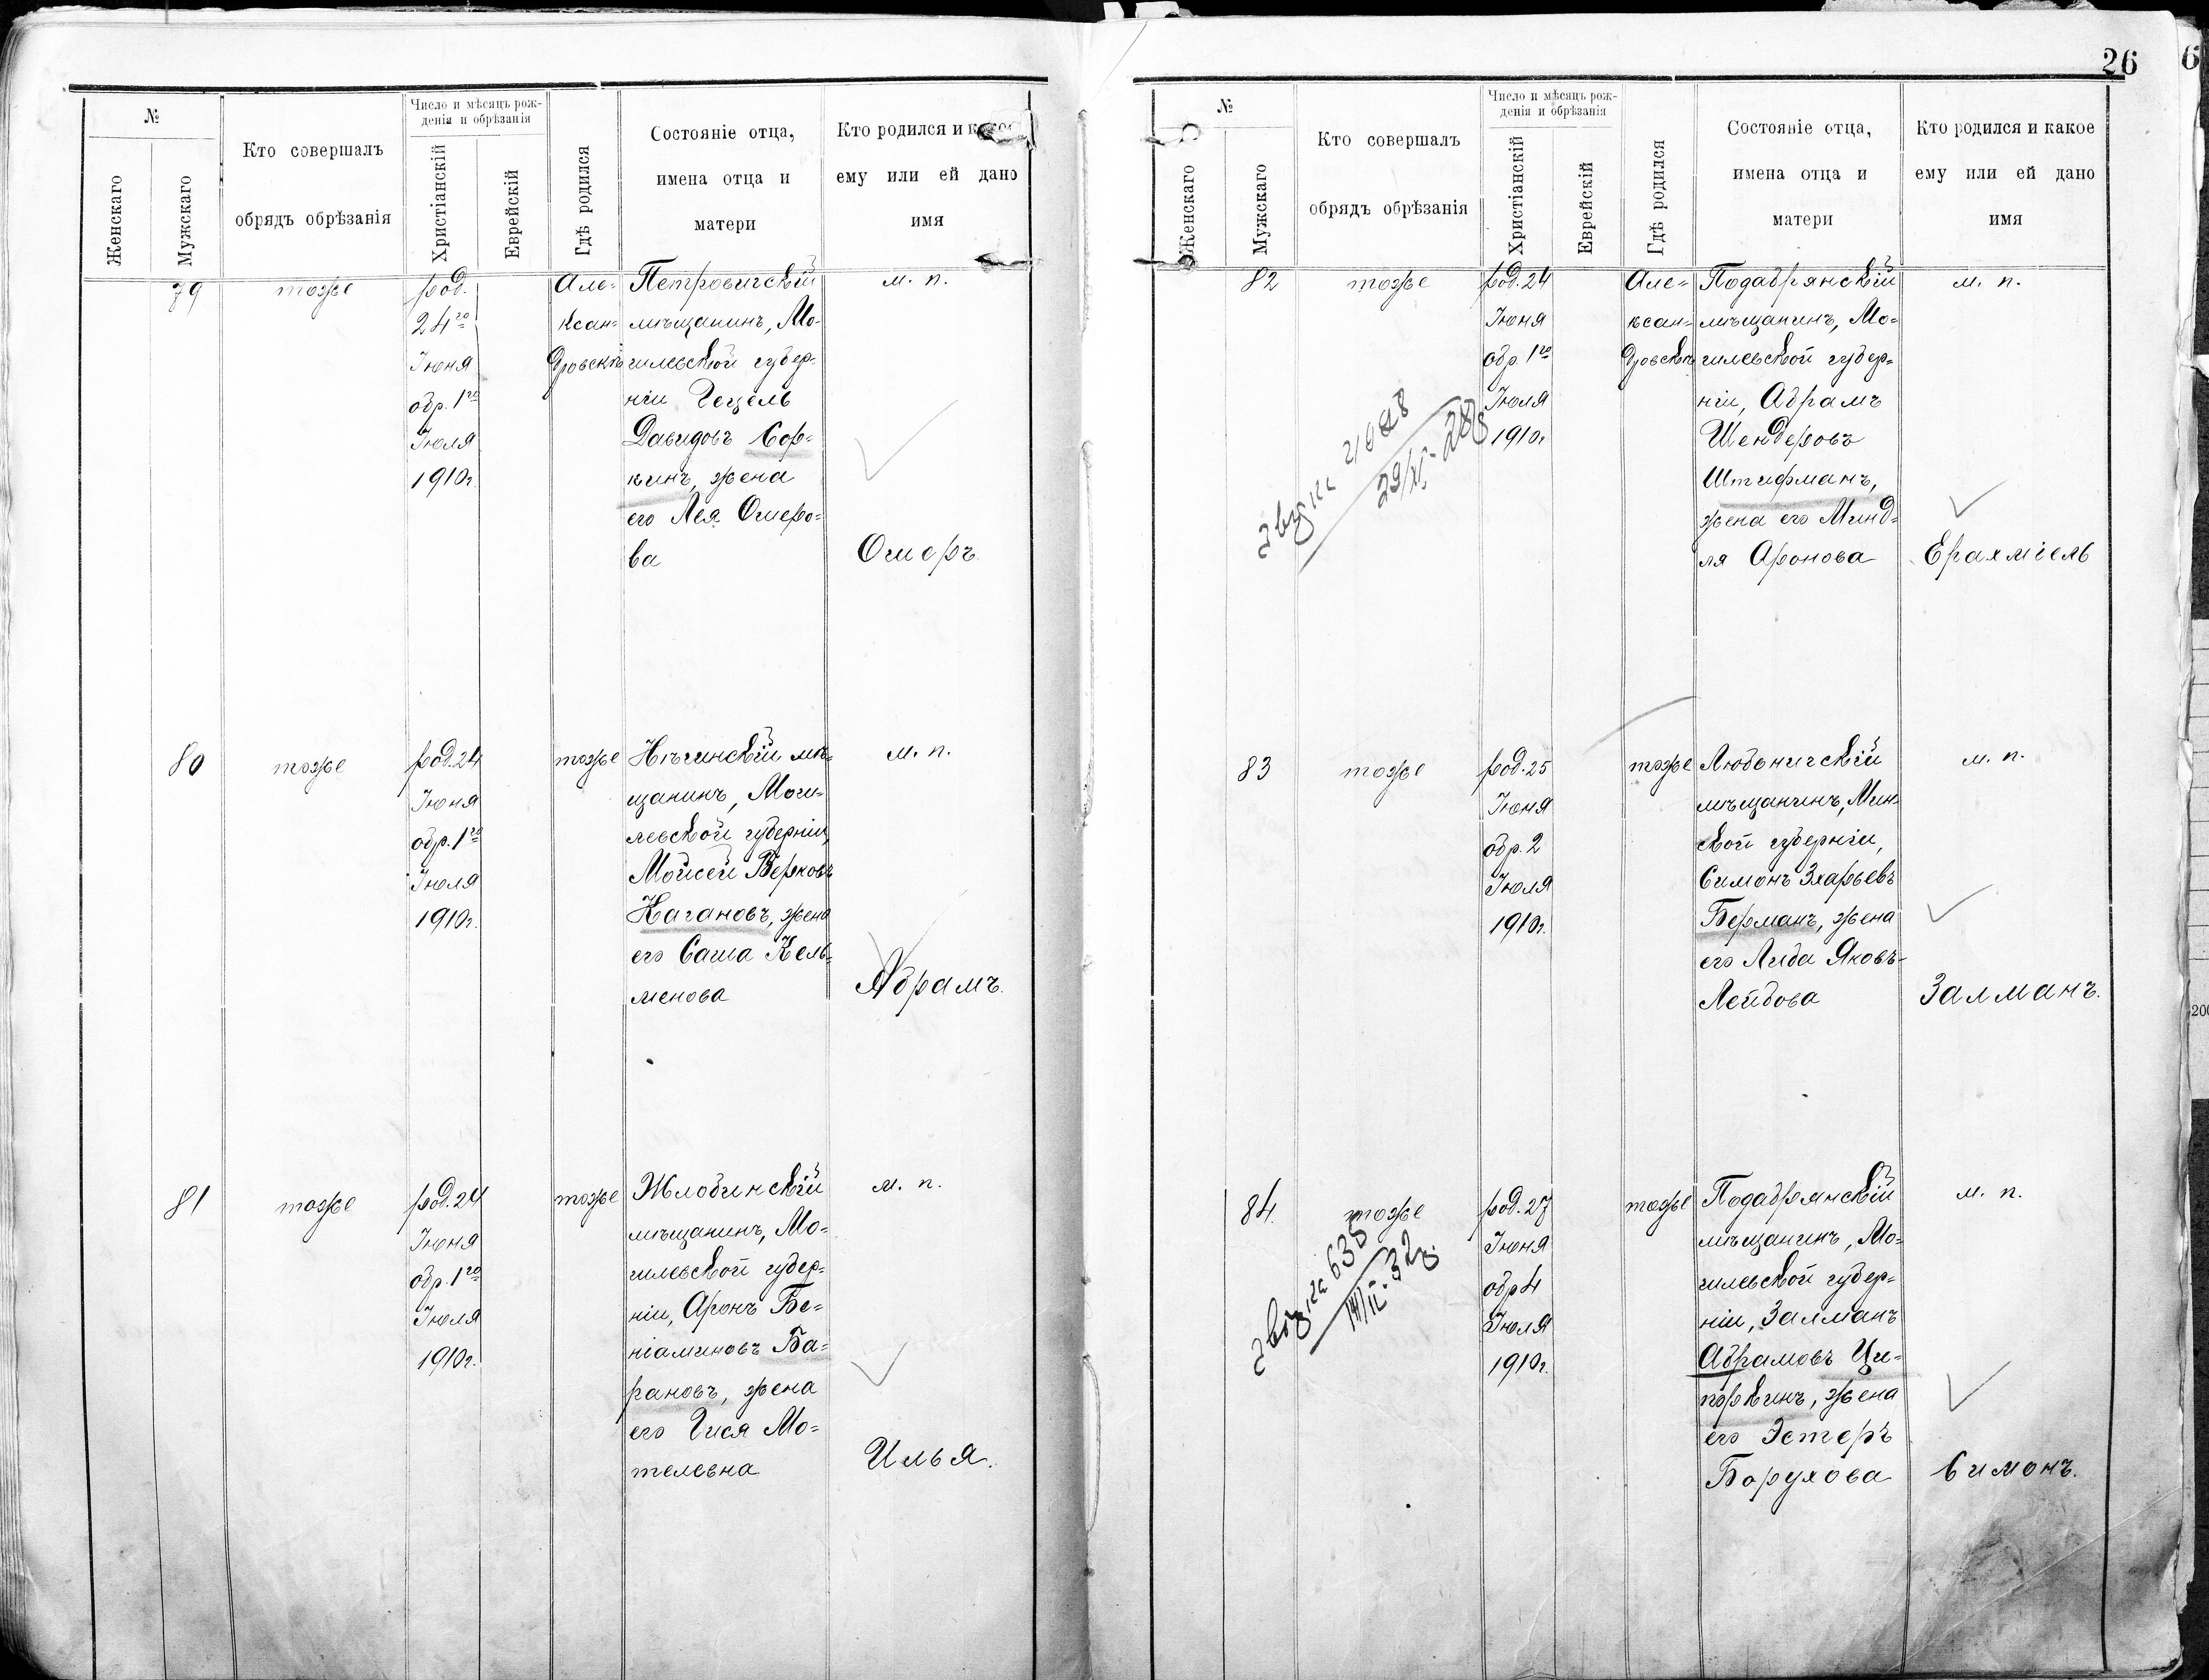 №
Женскаго
Мужскаго
Кто совершалъ
обрядъ обрѣзанія
Число и мѣсяцъ рож-
денія и обрѣзанія
Христіанскій
Еврейскій
Гдѣ родился
Состояніе отца,
имена отца и
матери
Кто родился и какое
ему или ей дано
имя
79
тоже
род.
24го
Іюня
обр. 1го
Іюля
1910г.
Але=
ксан=
дровскѣ
Петровичскій
мѣщанинъ, Мо-
гилевской губер-
ніи Гецель
Давидовъ Сор-
кинъ, жена
его Лея Ошеро=
ва
м. п.
Ошеръ.
80
тоже
род. 24
Іюня
обр. 1го
Іюля
1910г.
тоже
мѣ-
щанинъ, Моги-
левской губерніи,
Мойсей Берковъ
Кагановъ, жена
его Саша Кель-
менова
м. п.
Абрамъ.
81
тоже
род. 24
Іюня
обр. 1го
Іюля
1910г.
тоже
Жлобинскій
мѣщанинъ, Мо-
гилевской губер-
ніи, Аронъ Бе=
ніаминовъ Ба=
рановъ, жена
его Гися Мо=
телевна
м. п.
Илья.
26
6
№
Женскаго
Мужскаго
Кто совершалъ
обрядъ обрѣзанія
Число и мѣсяцъ рож-
денія и обрѣзанія
Христіанскій
Еврейскій
Гдѣ родился
Состояніе отца,
имена отца и
матери
Кто родился и какое
ему или ей дано
имя
82
тоже
род. 24
Іюня
обр. 1го
Іюля
1910г.
Але=
ксан=
дровскѣ
Подабрянскій
мѣщанинъ, Мо=
гилевской губер=
ніи, Абрамъ
Шендеровъ
Штифманъ,
жена его Минд-
ля Аронова
м. п.
Ерахміель
83
тоже
род. 25
Іюня
обр. 2
Іюля
1910г.
тоже
Любоничскій
мѣщанинъ, Мин-
ской губерніи,
Симонъ Зхарьевъ
Берманъ, жена
его Либа Яковъ-
Лейбова
м. п.
Залманъ.
84.
тоже
635
род. 27
Іюня
обр 4
Іюля
1910г.
тоже
Подабрянскій
мѣщанинъ, Мо=
гилевской губер=
ніи, Залманъ
Абрамовъ Ци=
поркинъ, жена
его Эстеръ
Борухова
м. п.
Симонъ.
200